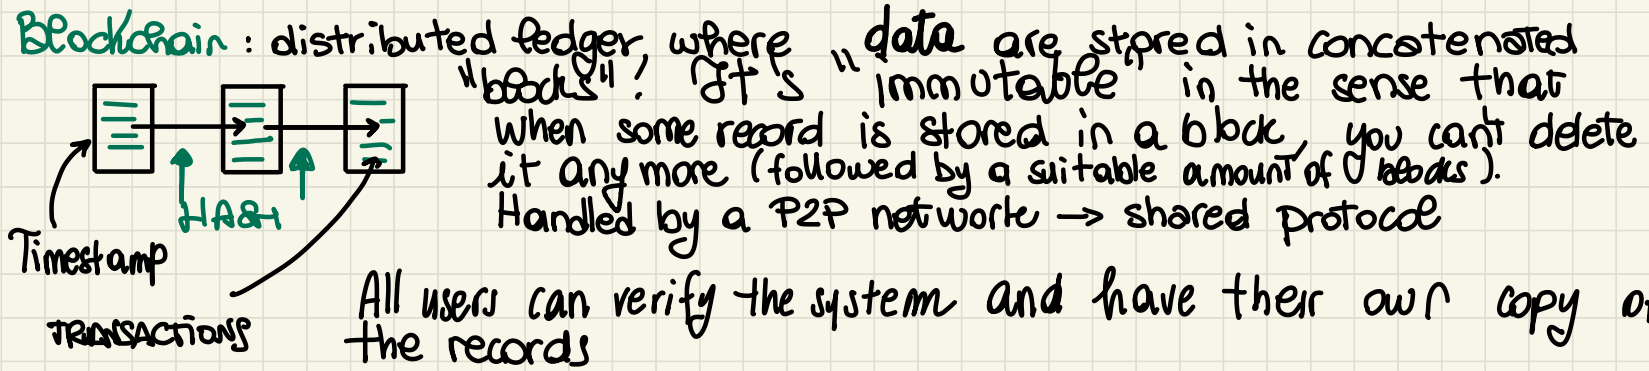 Blockchain : distributed ledger, where data are stored in concatenated
"blocks"! It's "immutable" in the sense that
when some record is stored in a block, you can't delete
it anymore (followed by a suitable amount of blocks).
Handled by a P2P network → shared protocol
HASH
Timestamp
TRANSACTIONS
All users can verify the system and have their own copy of
the records